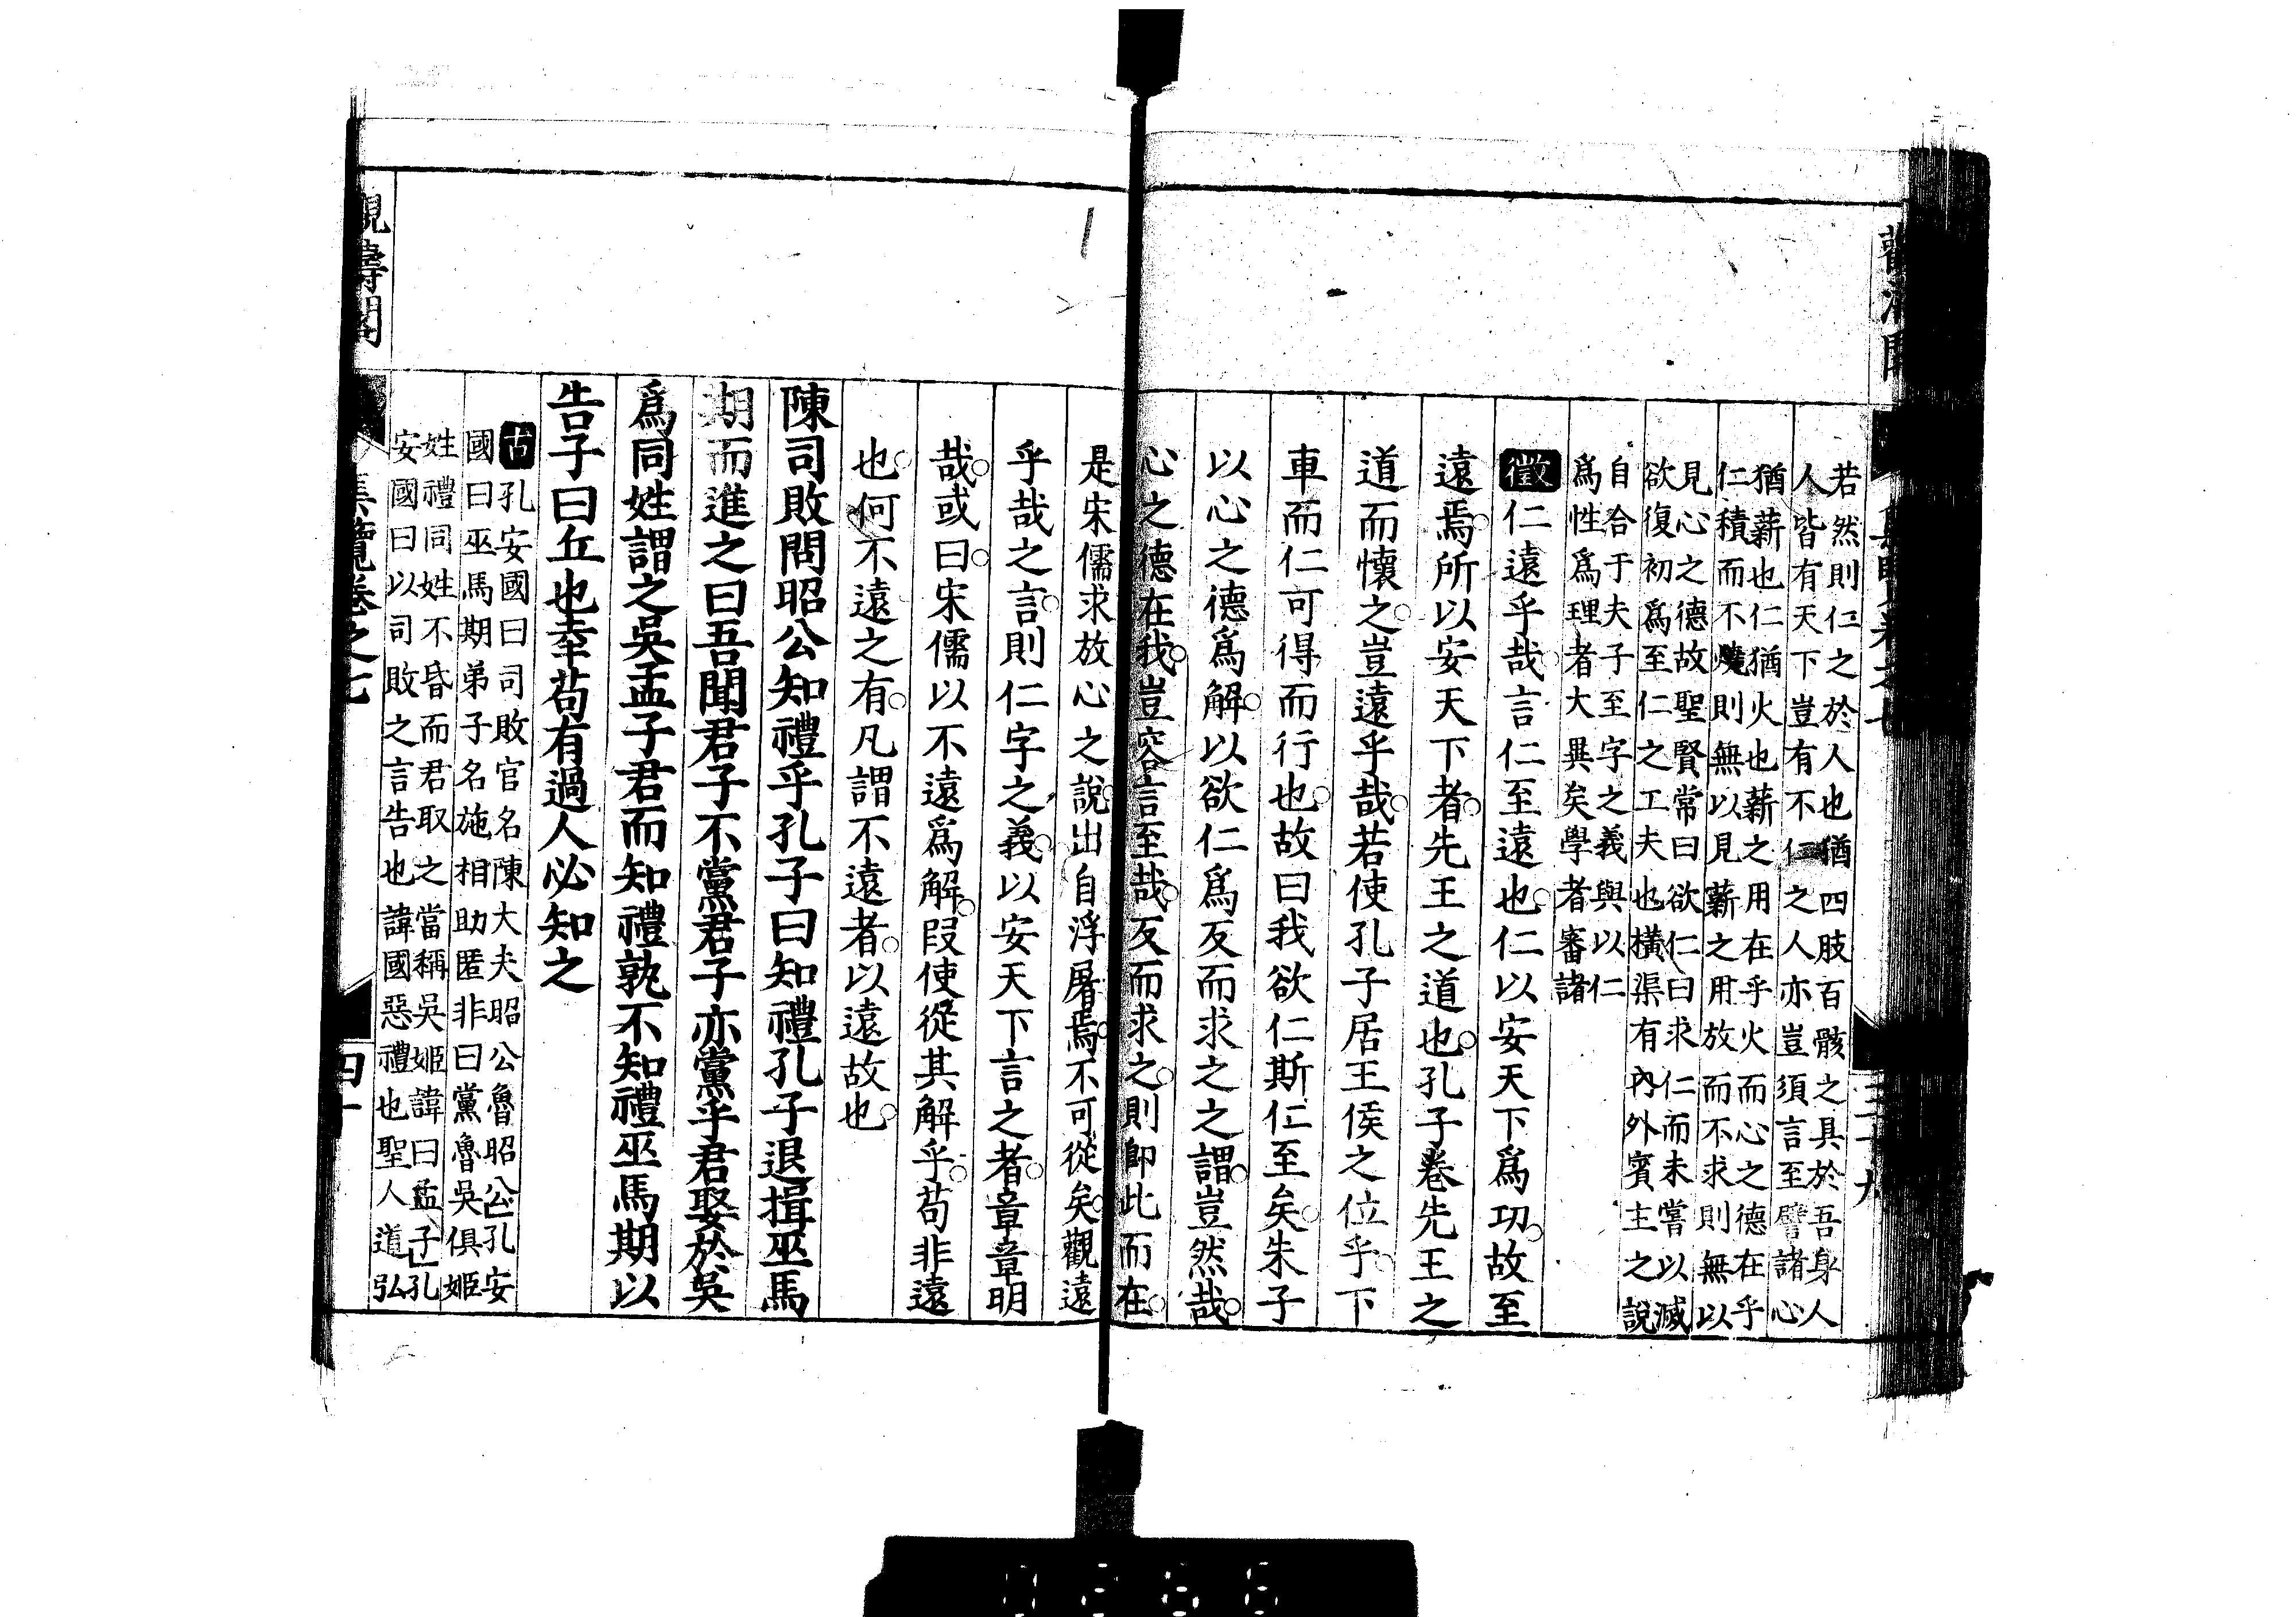 若然則仁之於人也猶四肢百骸之具於吾身人
人皆有天下豈有不仁之人亦豈須言至譬諸心
猶薪也仁猶火也薪之用在乎火而心之德在乎
仁積而不燒則無以見薪之用放而不求則無以
見心之德故聖賢常曰欲仁曰求仁而未嘗以滅
欲復初爲至仁之工夫也橫渠有內外賓主之說
自合于夫子至字之義與以仁
爲性爲理者大異矣學者審諸
徵仁遠乎哉言仁至遠也仁以安天下爲功故至
遠焉所以安天下者先王之道也孔子卷先王之
道而懷之豈遠乎哉若使孔子居王侯之位乎下
車而仁可得而行也故曰我欲仁斯仁至矣朱子
以心之德爲解以欲仁爲反而求之之謂豈然哉
心之德在我豈容言至哉反而求之則即此而在
是宋儒求放心之說出自浮屠焉不可從矣觀遠
乎哉之言則仁字之義以安天下言之者章章明
哉或曰宋儒以不遠爲解叚使從其解乎苟非遠
也何不遠之有凡謂不遠者以遠故也
陳司敗問昭公知禮乎孔子曰知禮孔子退揖巫馬
期而進之曰吾聞君子不黨君子亦黨乎君娶於吳
爲同姓謂之吳孟子君而知禮孰不知禮巫馬期以
告子曰丘也幸苟有過人必知之
古孔安國曰司敗官名陳大夫昭公魯昭公孔安
國曰巫馬期弟子名施相助匿非曰黨魯吳俱姬
姓禮同姓不昏而君取之當稱吳姬諱曰孟子孔
安國曰以司敗之言告也諱國惡禮也聖人道弘
觀濤閣
集覽卷之七
四十